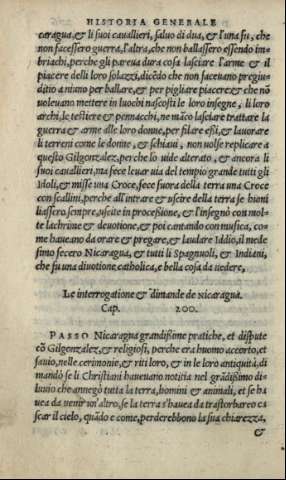 HISTORIA GENERALE
caragua, & li suoi cauallieri, saluo di dua, & l'una fu, che
non facessero guerra, l'altra, che non ballassero essendo im-
briachi, perche gli pareua dura cosa lasciare l'arme & il
piacere delli loro solazzi, dicẽdo che non faceuano pregiu-
ditio a niuno per ballare, & per pigliare piacere, & che nõ
uoleuano mettere in luochi nascosti le loro insegne, li loro
archi, le testiere & pennacchi, ne mãco lasciare trattare la
guerra & arme alle loro donne, per filare essi, & lauorare
li terreni come le donne, & schiaui, non uolse replicare a
questo Gilgonzalez, perche lo uide alterato, & ancora li
suoi cauallieri, ma fece leuar uia del tempio grande tutti gli
Idoli, & misse una Croce, fece fuora della terra una Croce
con scallini, perche all'intrare & uscire della terra se humi
liassero sempre, uscite in processione, & l'insegnò con mol-
te lachrime & deuotione, & poi cantando con musica, co-
me haueano da orare & pregare, & laudare Iddio, il mede
simo fecero Nicaragua, & tutti li Spagnuoli, & Indiani,
che fu una diuotione catholica, e bella cosa da uedere,
Le interrogatione & dimande de nicaragua.
Cap. 200.
PASSO Nicaragua grandissime pratiche, et dispute
cõ Gilgonzalez, & religiosi, perche era huomo accorto, et
sauio, nelle cerimonie, & riti loro, & in le loro antiquità, di
mandò se li Christiani haueuano notitia nel grãdissimo di-
luuio che annegò tutta la terra, homini & animali, et se ha
uea da uenir un'altro, se la terra s'hauea da trastorbare o ca
scar il cielo, quãdo e come, perderebbono la sua chiarezza,
&